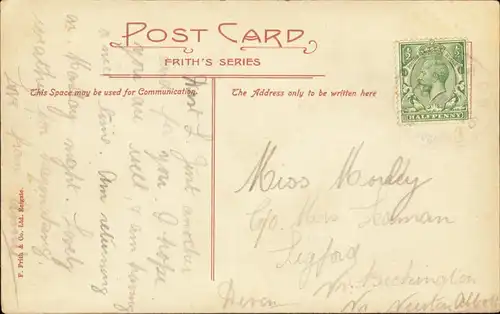 POST CARD
FRITH'S SERIES
This Space may be used for Communication.
The Address only to be written here
HALFPENNY
F. Frith & Co. Ltd. Reigate.
Just another
for you. I hope
you are well, & am having
a nice time. Am returning
on Monday night. Lovely
weather for
from
Miss Morley
C/o Miss Leaman
Sigford
Nr. Bickington
Nr. Newton Abbot
Devon